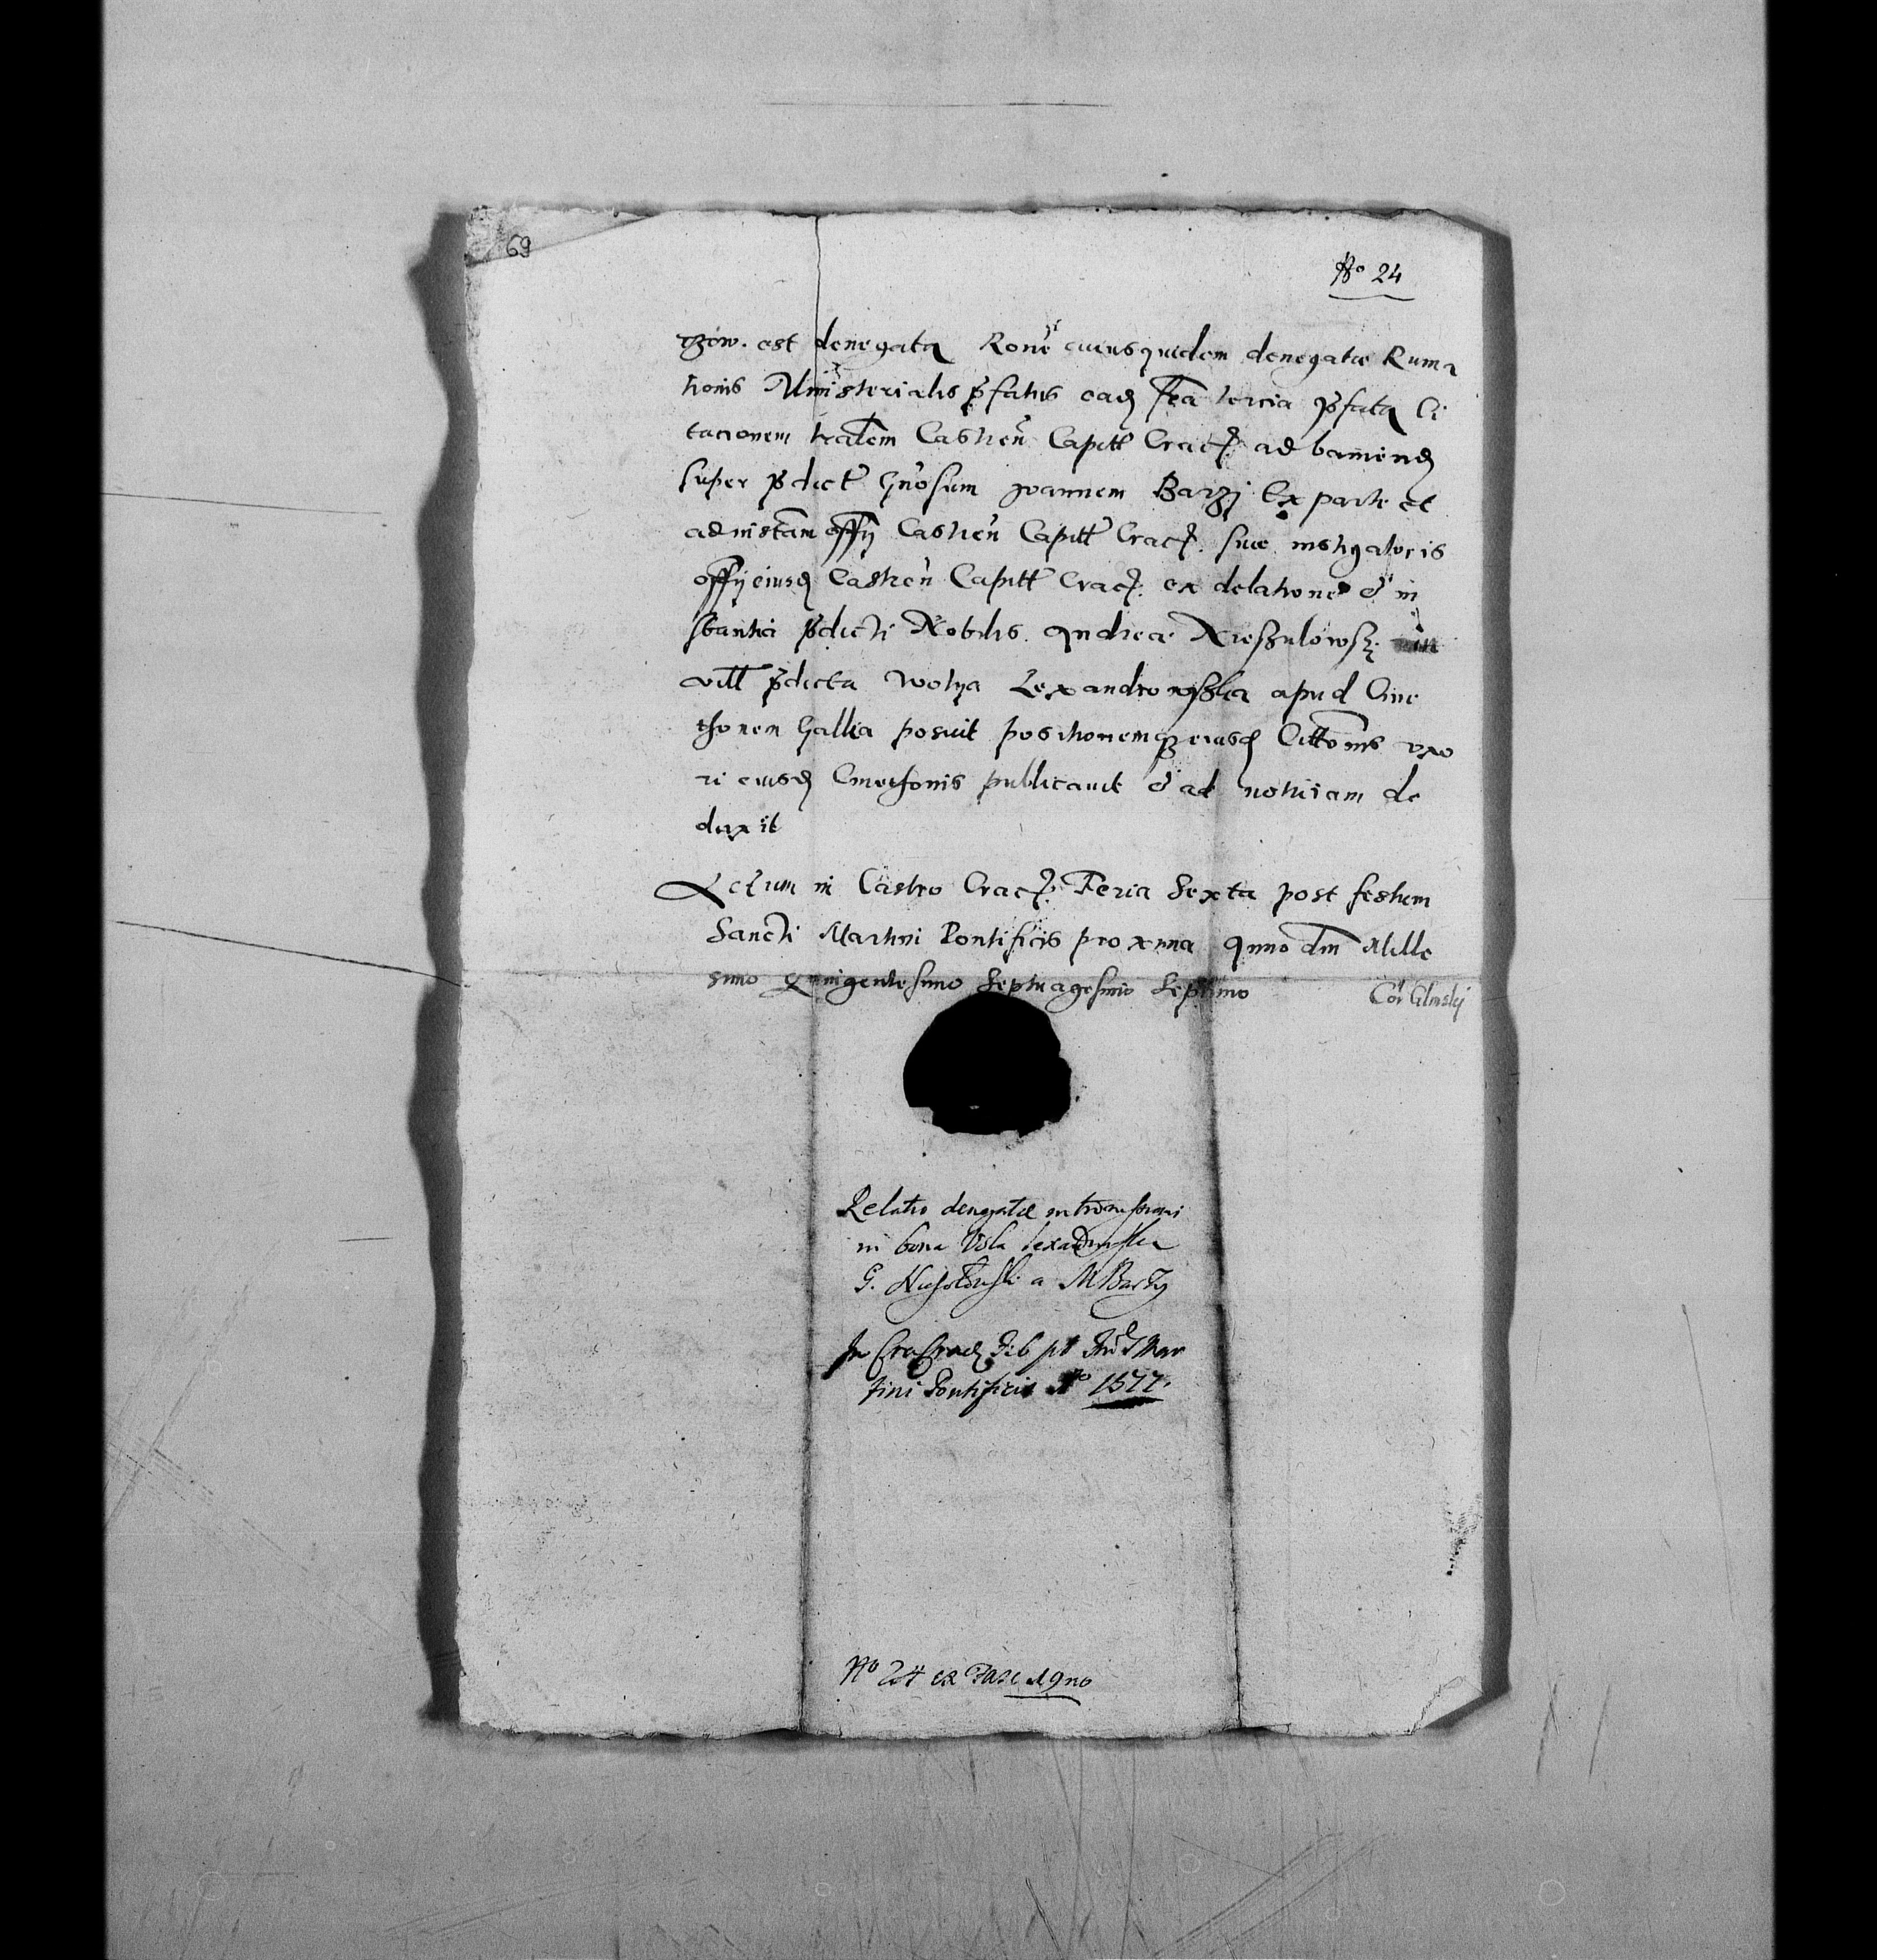 69
No 24
est denegata Rone cuiusquidem denegatae Ruma
tionis Ministerialis pfatus ead fea tercia pfata Ci
tacionem tralem Castren Capitl Crac. ad baniend
super pdict Gnosum Joannem Barzi Ex parte et
ad instam offy Castren Capitl Crac. siue instigatoris
offy eiusd Castren Capitl Crac. ex delatione & in
stantia pdicti Nobilis Andreae in
vill pdicta Wolya Lexandrowska apud Cme
thonem Gallia posuit positionemqz eiusd Cittonis vxo
ri eiusd Cmethonis publicauit & ad notitiam de
duxit
Actum in Castro Crac. Feria Sexta post festum
Sancti Martini Pontificis proxima Anno dni Mille
simo Quingentesimo Septuagesimo Septimo
Relatio denegatae intromissionis
in bona Vola
G. a M Barzy
In Pt Mar
tini Pontificis Ao 1577.
No 24 ex Fasc 19no